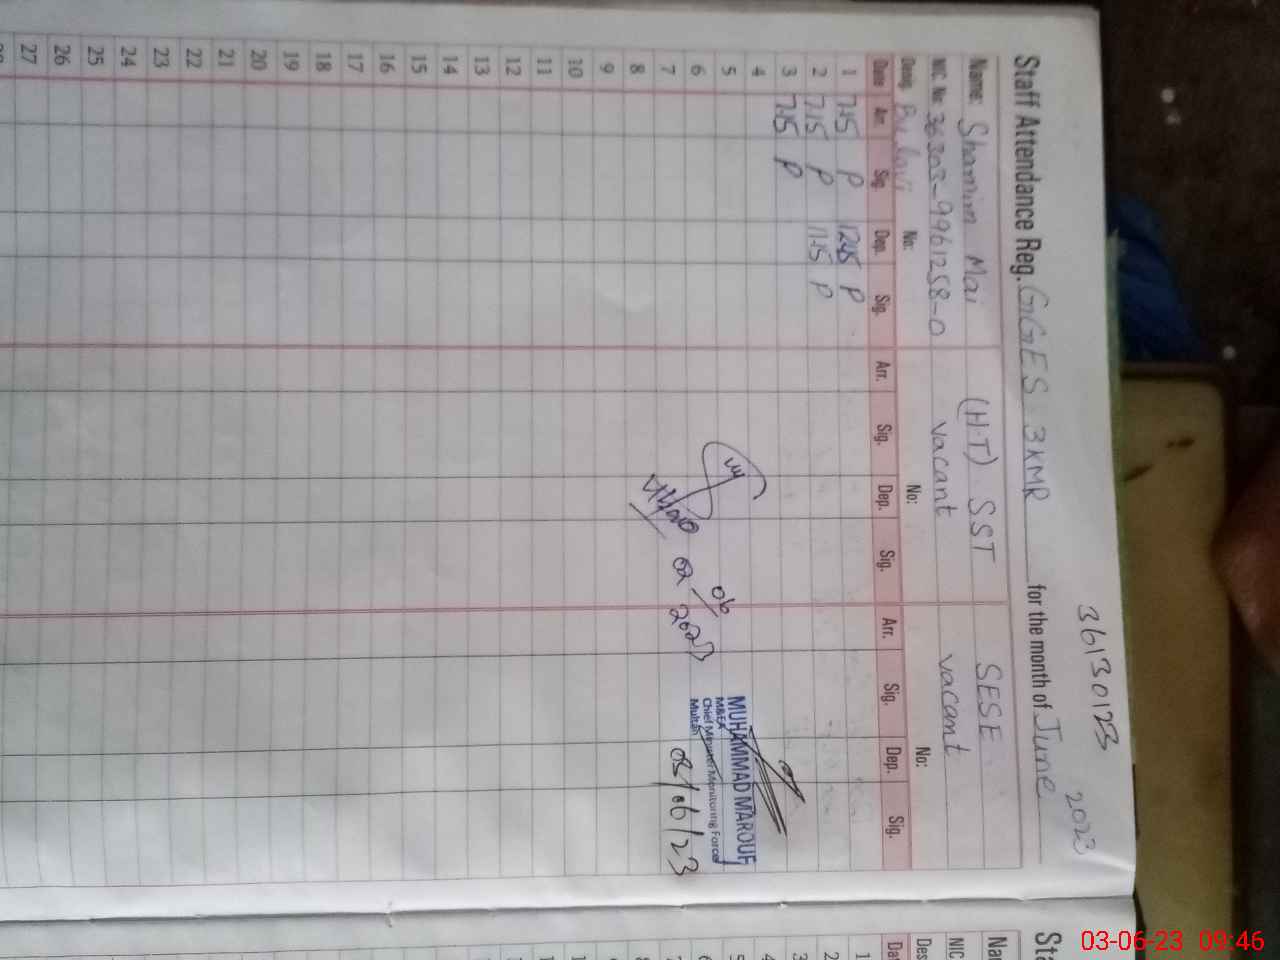 36130123 2023
Staff Attendance Reg. GGES 3KMR for the month of June
Name: Shamim Mai (H.T) SST SESE
NIC. No 36303-9961258-0 vacant vacant
Desig. No: No: No:
Date Arr. Sig. Dep. Sig. Arr. Sig. Dep. Sig. Arr. Sig. Dep. Sig.
1 7:45 P 12:45 P
2 7:15 P 11:45 P
3 7:15 P
4
5
6
7
8
9
10
11
12
13
14
15
16
17
18
19
20
21
22
23
24
25
26
27
02/06 2023
MUHAMMAD MAROUF
M&EA
Chief Minister Monitoring Force
Multan
03/06/23
Sta
Na
NIC
Des
Dat
1
2
3
4
5
6
7
03-06-23 09:46